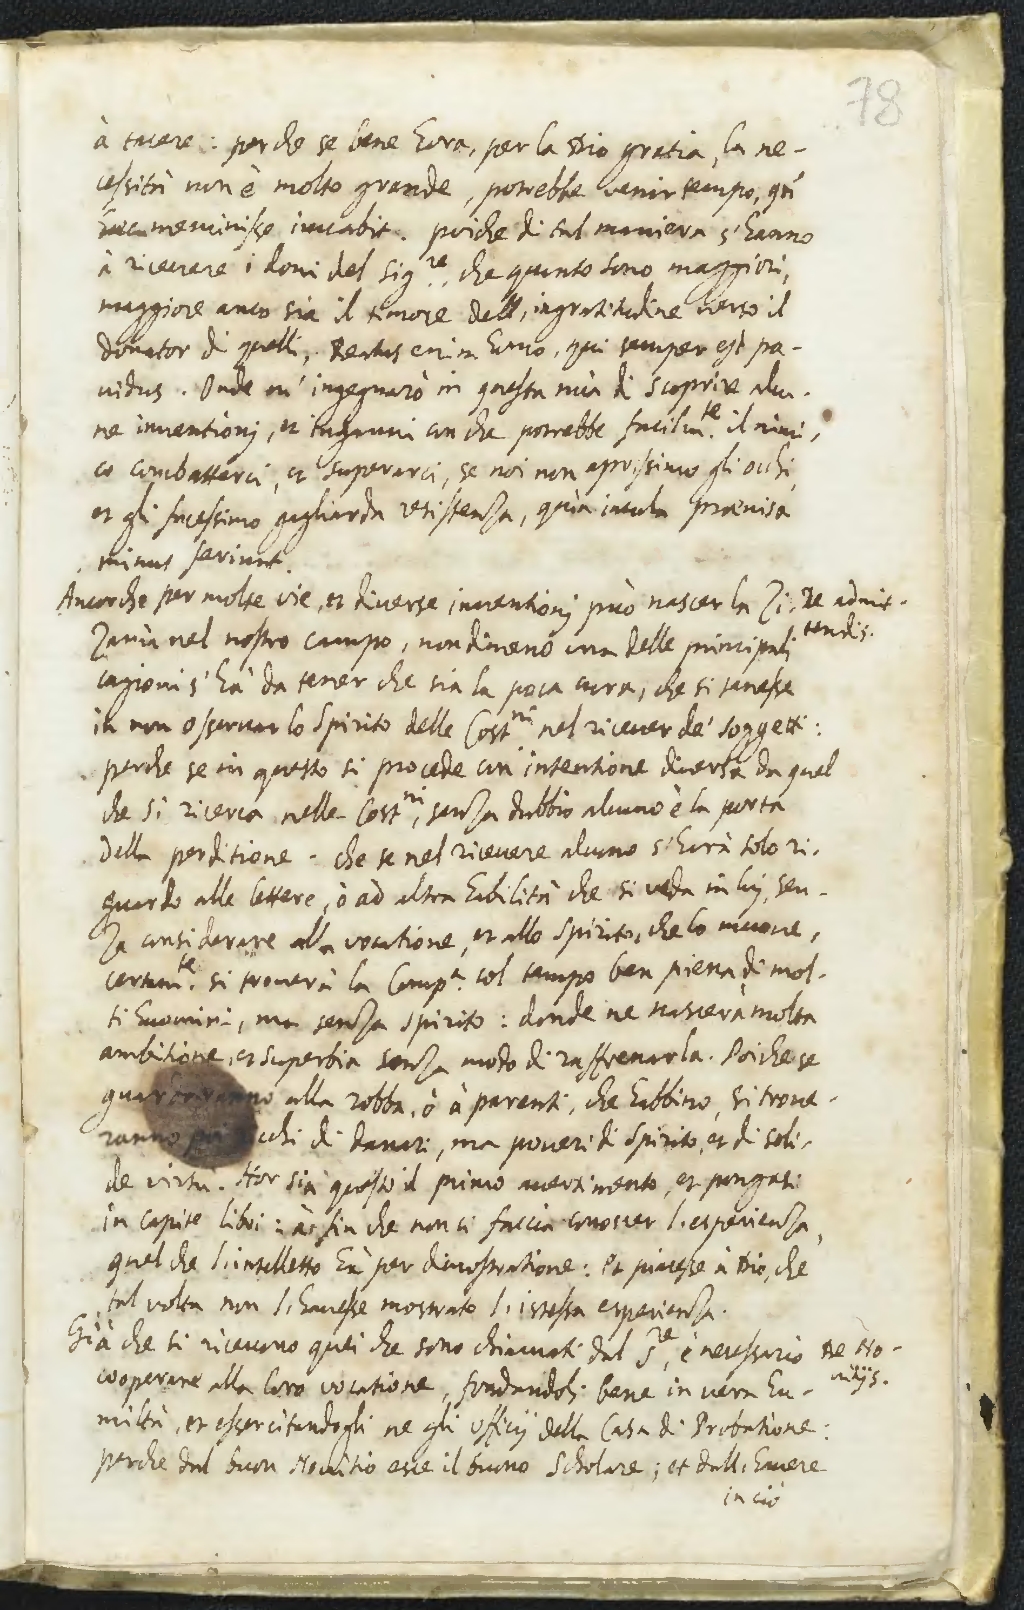 78
à tacere: perche se bene hora, per la Dio gratia, la ne-
cessità non è molto grande, potrebbe venir tempo, qñ
meminisse iuvabit. poiche di tal maniera s'hanno
à ricevere i doni del Sig.re, che quanto sono maggiori,
maggiore anco sia il timore dell'ingratitudine verso il
donator di quelli, Beatus enim homo, qui semper est pa-
vidus. Onde m'ingegnarò in questa mia di scoprire alcu-
ne inventionj, et inganni con che potrebbe facilm.te il nimi-
co combatterci, et superarci, se noi non aprissimo gli occhi,
et gli facessimo gagliarda resistenza, quia iacula prævisa
minus feriunt.
Ancorche per molte vie, et diverse inventionj può nascer la Zi-
De admit-
zania nel nostro campo, nondimeno una delle principali
tendis.
cagioni s'hà da tener che sia la poca cura, che si tenesse
in non osservar lo Spirito delle Cost.ni nel ricever de' soggetti:
perche se in questo si procede con intentione diversa da quel
che si ricerca nelle Cost.ni, senza dubbio alcuno è la porta
della perditione. che se nel ricevere alcuno s'havrà solo ri-
guardo alle lettere, ò ad altra habilità che si veda in lui, sen-
za considerare alla vocatione, et allo Spirito, che lo muove,
certam.te si troverà la Comp.a col tempo ben piena di mol-
ti huomini, ma senza spirito: donde ne nascerà molta
ambitione, et superbia senza modo di raffrenarla. Poiche se
guarderanno alla robba, ò à parenti, che habbino, si trove-
ranno poi ricchi di danari, ma poveri di Spirito, et di soli-
de virtù. Hor sia questo il primo avertimento, et pongasi
in capite libri: à fin che non ci faccia conoscer l'esperienza,
quel che l'intelletto hà per dimostratione: Et piacesse à Dio, che
tal volta non l'havesse mostrato l'istessa esperienza.
Già che si ricevono quei che sono chiamati dal S.re, è necessario
De No-
cooperare alla loro vocatione, fondandoli bene in vera hu-
vitijs.
miltà, et essercitandogli ne gli ufficij della Casa di Probatione:
perche dal buon Novitio esce il buono Scholare; et dall'havere
in ciò